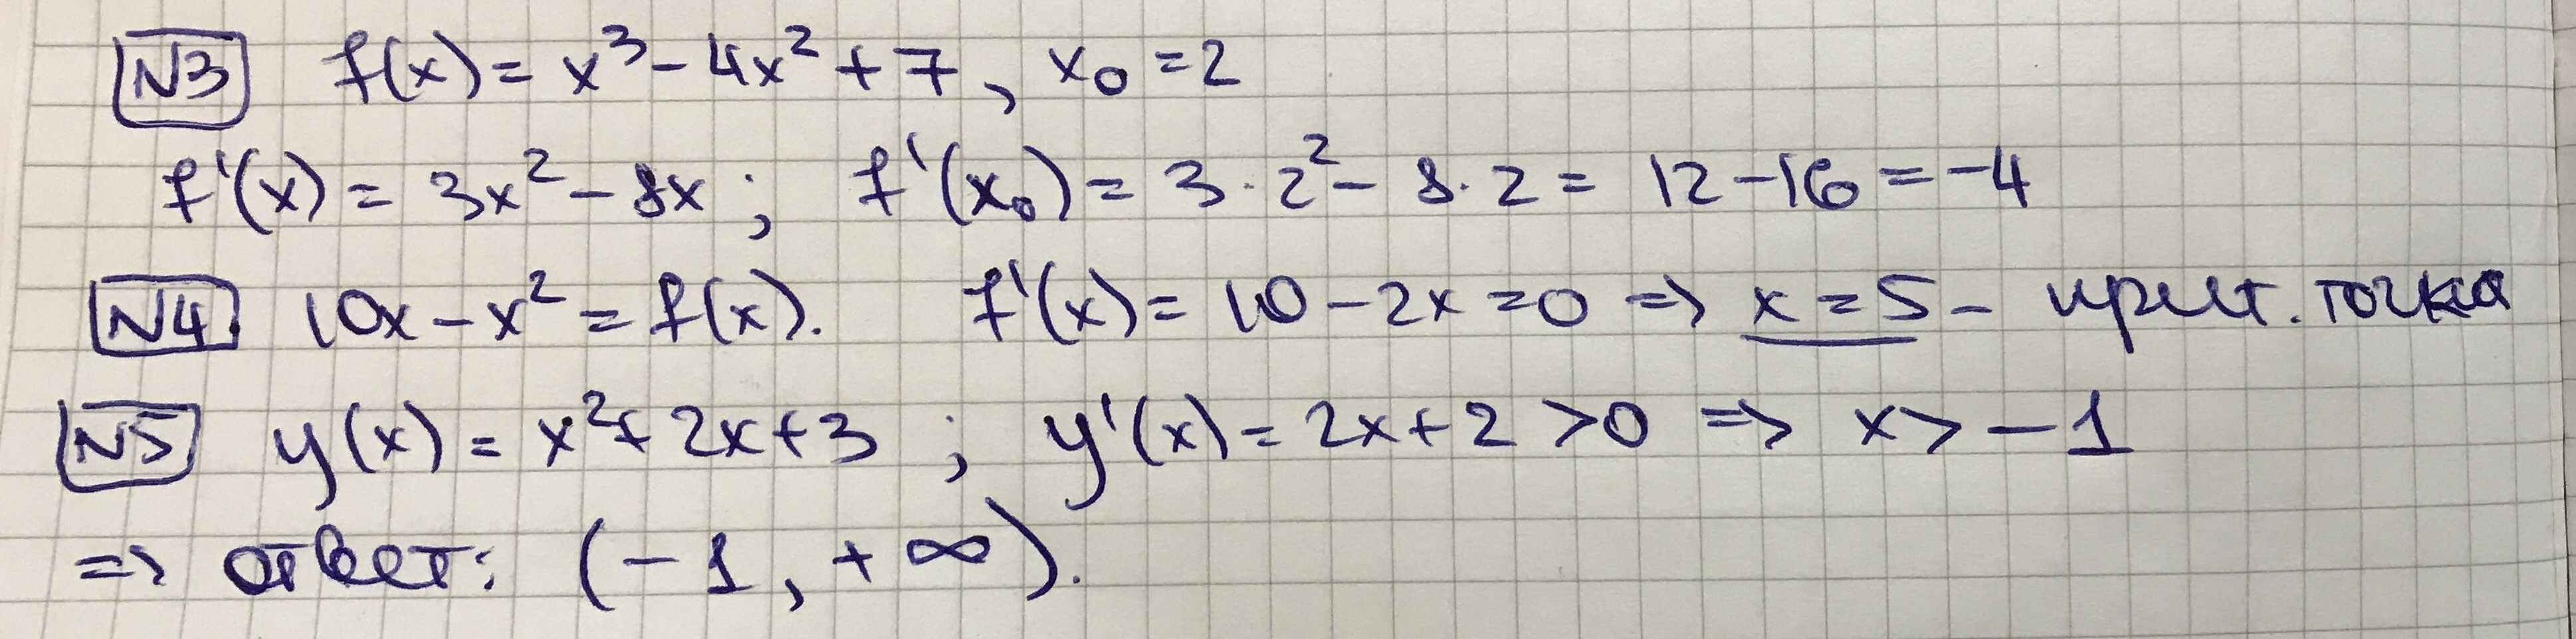 N3 f(x) = x³ - 4x² + 7, x₀ = 2
f'(x) = 3x² - 8x; f'(x₀) = 3·2² - 8·2 = 12 - 16 = -4
N4 10x - x² = f(x). f'(x) = 10 - 2x = 0 => x = 5 - крит. точка
N5 y(x) = x² + 2x + 3; y'(x) = 2x + 2 > 0 => x > -1
=> ответ: (-1, +∞).